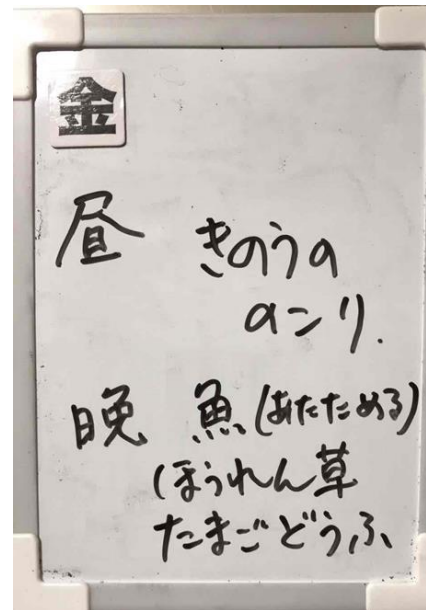 金
昼 きのうの
のこり.
晩 魚(あたためる)
(ほうれん草
たまごどうふ